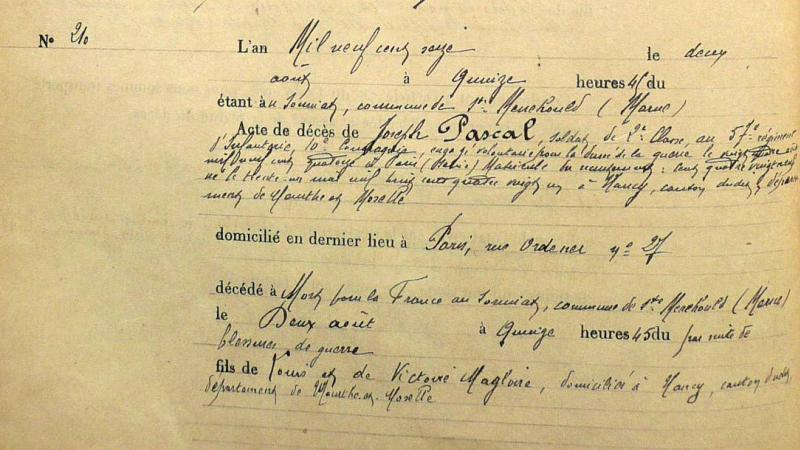 N° 210
L'an Mil neuf cent seize le deux
août à Quinze heures 45 du
étant à commune de Ste Menehould (Marne)
Acte de décès de Joseph Pascal, soldat de 2e Classe, au 57e régiment
d'Infanterie, 10e Compagnie, engagé volontaire pour la durée de la guerre le vingt quatre août
mil neuf cent quatorze à Paris (Seine) Matricule au recrutement : cent quatre vingt neuf
né le trente-un mai mil huit cent quatre vingt un à Nancy, canton dudit, départe-
ment de Meurthe et Moselle
domicilié en dernier lieu à Paris, rue Ordener n° 27
décédé à Mort pour la France au commune de Ste Menehould (Marne)
le Deux août à Quinze heures 45 du par suite de
blessures de guerre
fils de Louis et de Victoire Magloire, domicilié à Nancy, canton dudit,
département de Meurthe-et-Moselle